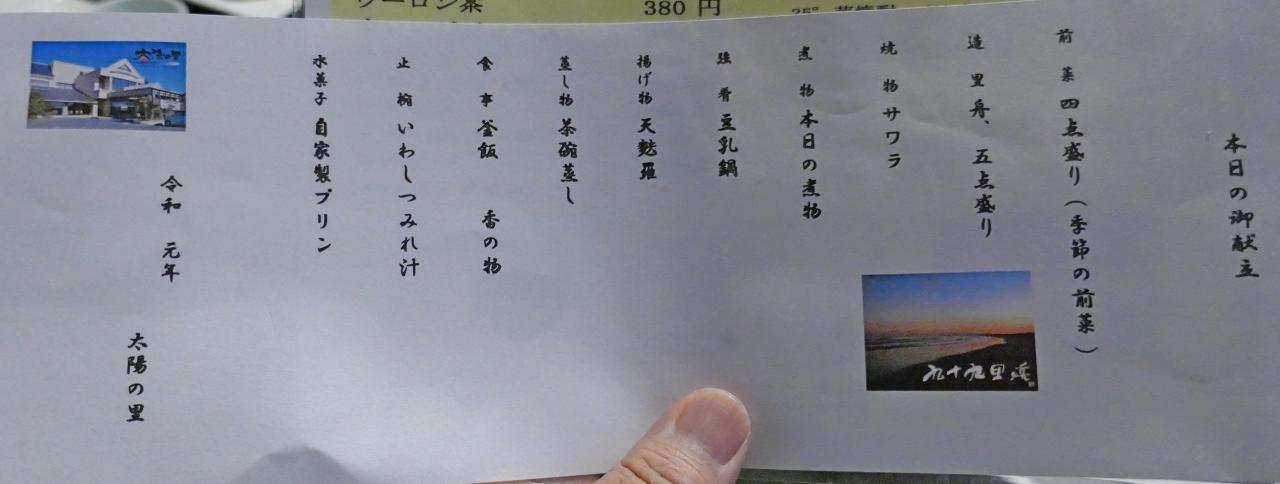 ウーロン茶
380 円
本日の御献立
前 菜 四点盛り（季節の前菜）
造 里 舟、五点盛り
焼 物 サワラ
煮 物 本日の煮物
強 肴 豆乳鍋
揚げ物 天麩羅
蒸し物 茶碗蒸し
食 事 釜飯 香の物
止 椀 いわしつみれ汁
水菓子 自家製プリン
令和 元年
太陽の里
九十九里浜